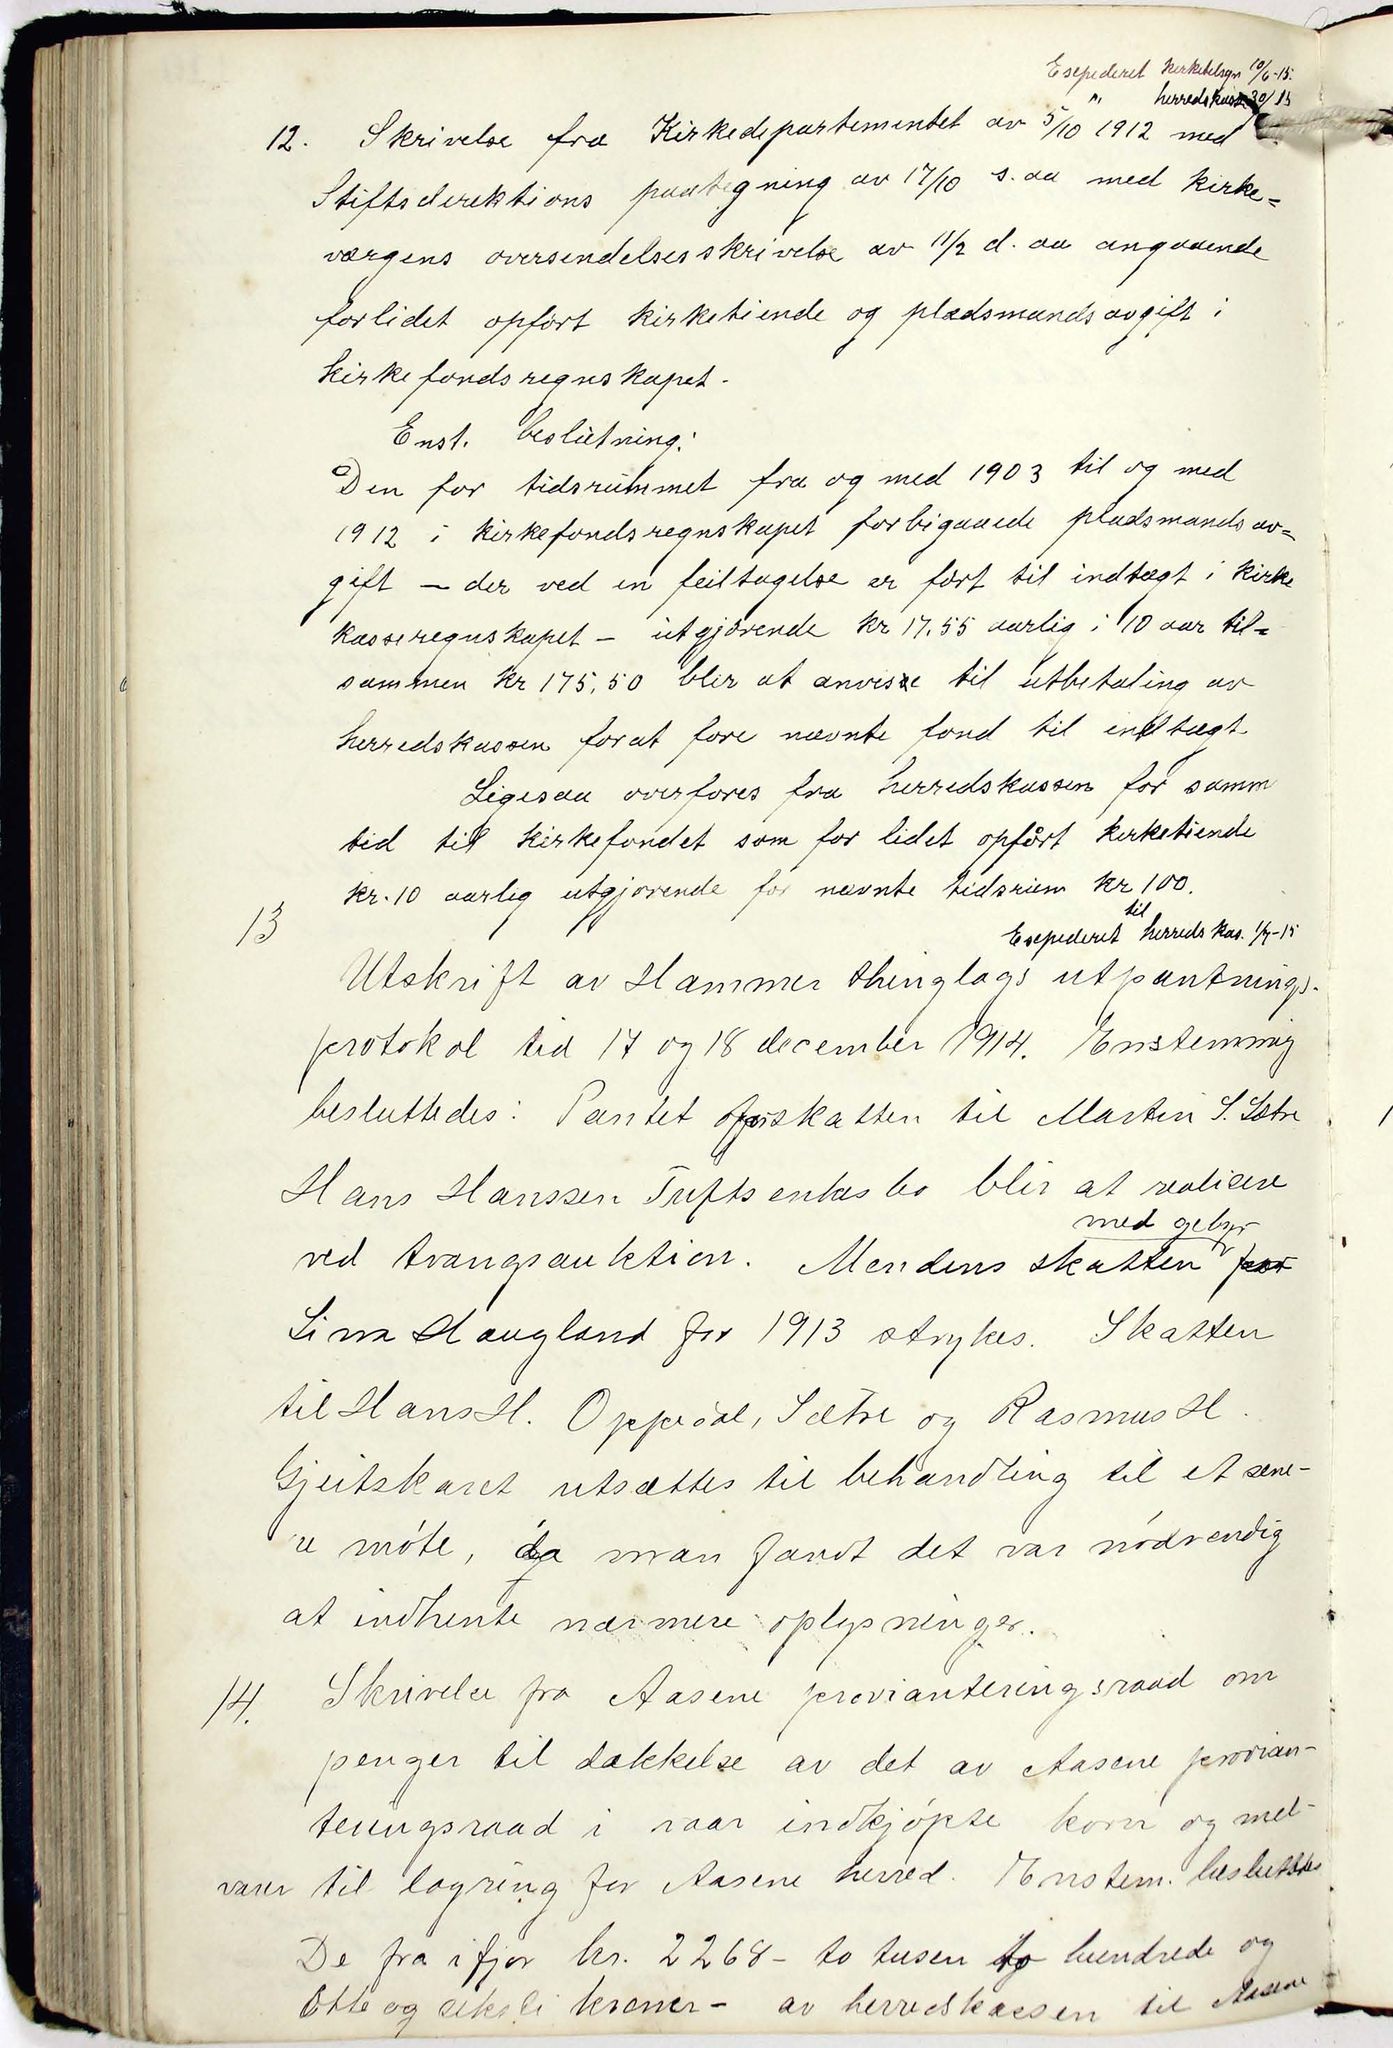 Expederet Kirketilsyn 10/6-15.
" herredskasse 30/15
12. Skrivelse fra Kirkedepartementet av 5/10 1912 med
Stiftsdirektions paategning av 17/10 s. aa med kirke-
værgens oversendelsesskrivelse av 11/2 d. aa angaaende
forlidet opført kirketiende og pladsmandsavgift i
kirkefondsregnskapet.
Enst. beslutning:
Den for tidsrummet fra og med 1903 til og med
1912 i kirkefondsregnskapet forbigaaede pladsmandsav-
gift - der ved en feiltagelse er ført til indtægt i kirke
kasseregnskapet - utgjørende kr 17,55 aarlig i 10 aar til-
sammen kr 175,50 blir at anvise til utbetaling av
herredskassen forat føre nævnte fond til indtægt.
Ligesaa overføres fra herredskassen for samm
tid til kirkefondet som for lidet opført kirketiende
kr. 10 aarlig utgjørende for nævnte tidsrum kr 100.
Expederet til herredskas. 1/7-15
13
Utskrift av Hammer thinglags utpantnings-
protokol tid 17 og 18 december 1914. Enstemmig
besluttedes: Pantet for skatten til Martin S. Sætre
Hans Hanssen Tufts enkes bo blir at realisere
ved tvangsauktion. Mendens skatten med gebyr for
Sina Haugland for 1913 strykes. Skatten
til Hans H. Oppedal, Sætre og Rasmus H.
Gjeitskaret utsættes til behandling til et sene-
re møte, da man fandt det var nødvendig
at indhente nærmere oplysninger.
14. Skrivelse fra Aasene provianteringsraad om
penger til dækkelse av det av Aasene provian-
teringsraad i vaar indkjøpte korn og mel-
varer til lagring for Aasene herred. Enstem. besluttedes
De fra ifjor kr. 2268 - to tusen to hundrede og
otte og seksti kroner - av herredskassen til Aasene